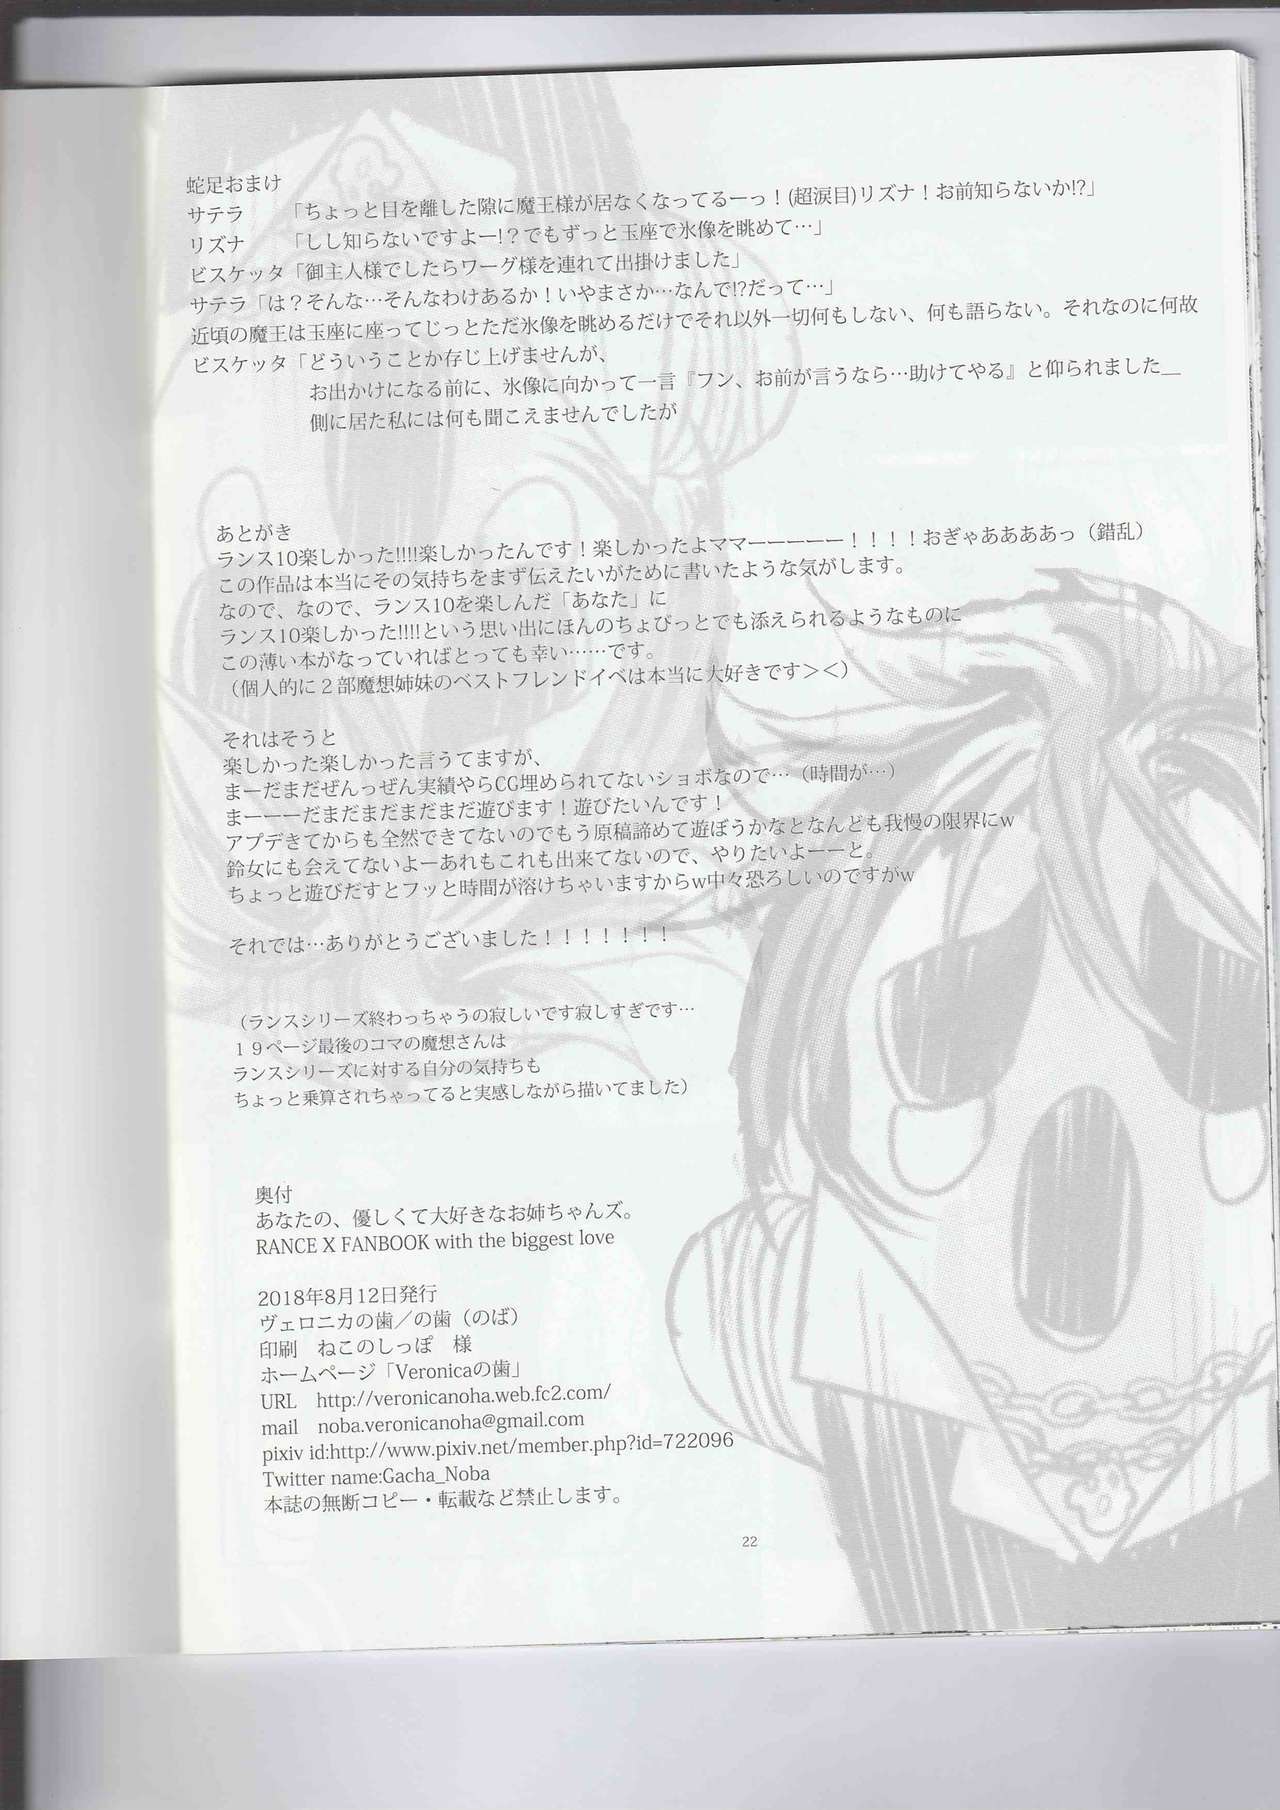 蛇足おまけ
サテラ　　「ちょっと目を離した隙に魔王様が居なくなってるーっ！(超涙目)リズナ！お前知らないか!?」
リズナ　　「しし知らないですよー!？でもずっと玉座で氷像を眺めて…」
ビスケッタ「御主人様でしたらワーグ様を連れて出掛けました」
サテラ「は？そんな…そんなわけあるか！いやまさか…なんで!?だって…」
近頃の魔王は玉座に座ってじっとただ氷像を眺めるだけでそれ以外一切何もしない、何も語らない。それなのに何故
ビスケッタ「どういうことか存じ上げませんが、
お出かけになる前に、氷像に向かって一言『フン、お前が言うなら…助けてやる』と仰られました＿
側に居た私には何も聞こえませんでしたが
あとがき
ランス10楽しかった!!!!楽しかったんです！楽しかったよママーーーーー！！！！おぎゃああああっ（錯乱）
この作品は本当にその気持ちをまず伝えたいがために書いたような気がします。
なので、なので、ランス10を楽しんだ「あなた」に
ランス10楽しかった!!!!という思い出にほんのちょびっとでも添えられるようなものに
この薄い本がなっていればとっても幸い……です。
（個人的に２部魔想姉妹のベストフレンドイベは本当に大好きです＞＜）
それはそうと
楽しかった楽しかった言うてますが、
まーだまだぜんっぜん実績やらCG埋められてないショボなので…（時間が…）
まーーーだまだまだまだまだ遊びます！遊びたいんです！
アプデきてからも全然できてないのでもう原稿諦めて遊ぼうかなとなんども我慢の限界にw
鈴女にも会えてないよーあれもこれも出来てないので、やりたいよーーと。
ちょっと遊びだすとフッと時間が溶けちゃいますからw中々恐ろしいのですがw
それでは…ありがとうございました！！！！！！！
（ランスシリーズ終わっちゃうの寂しいです寂しすぎです…
１９ページ最後のコマの魔想さんは
ランスシリーズに対する自分の気持ちも
ちょっと乗算されちゃってると実感しながら描いてました）
奥付
あなたの、優しくて大好きなお姉ちゃんズ。
RANCE X FANBOOK with the biggest love
2018年8月12日発行
ヴェロニカの歯／の歯（のば）
印刷　ねこのしっぽ　様
ホームページ「Veronicaの歯」
URL　http://veronicanoha.web.fc2.com/
mail　noba.veronicanoha@gmail.com
pixiv id:http://www.pixiv.net/member.php?id=722096
Twitter name:Gacha_Noba
本誌の無断コピー・転載など禁止します。
22